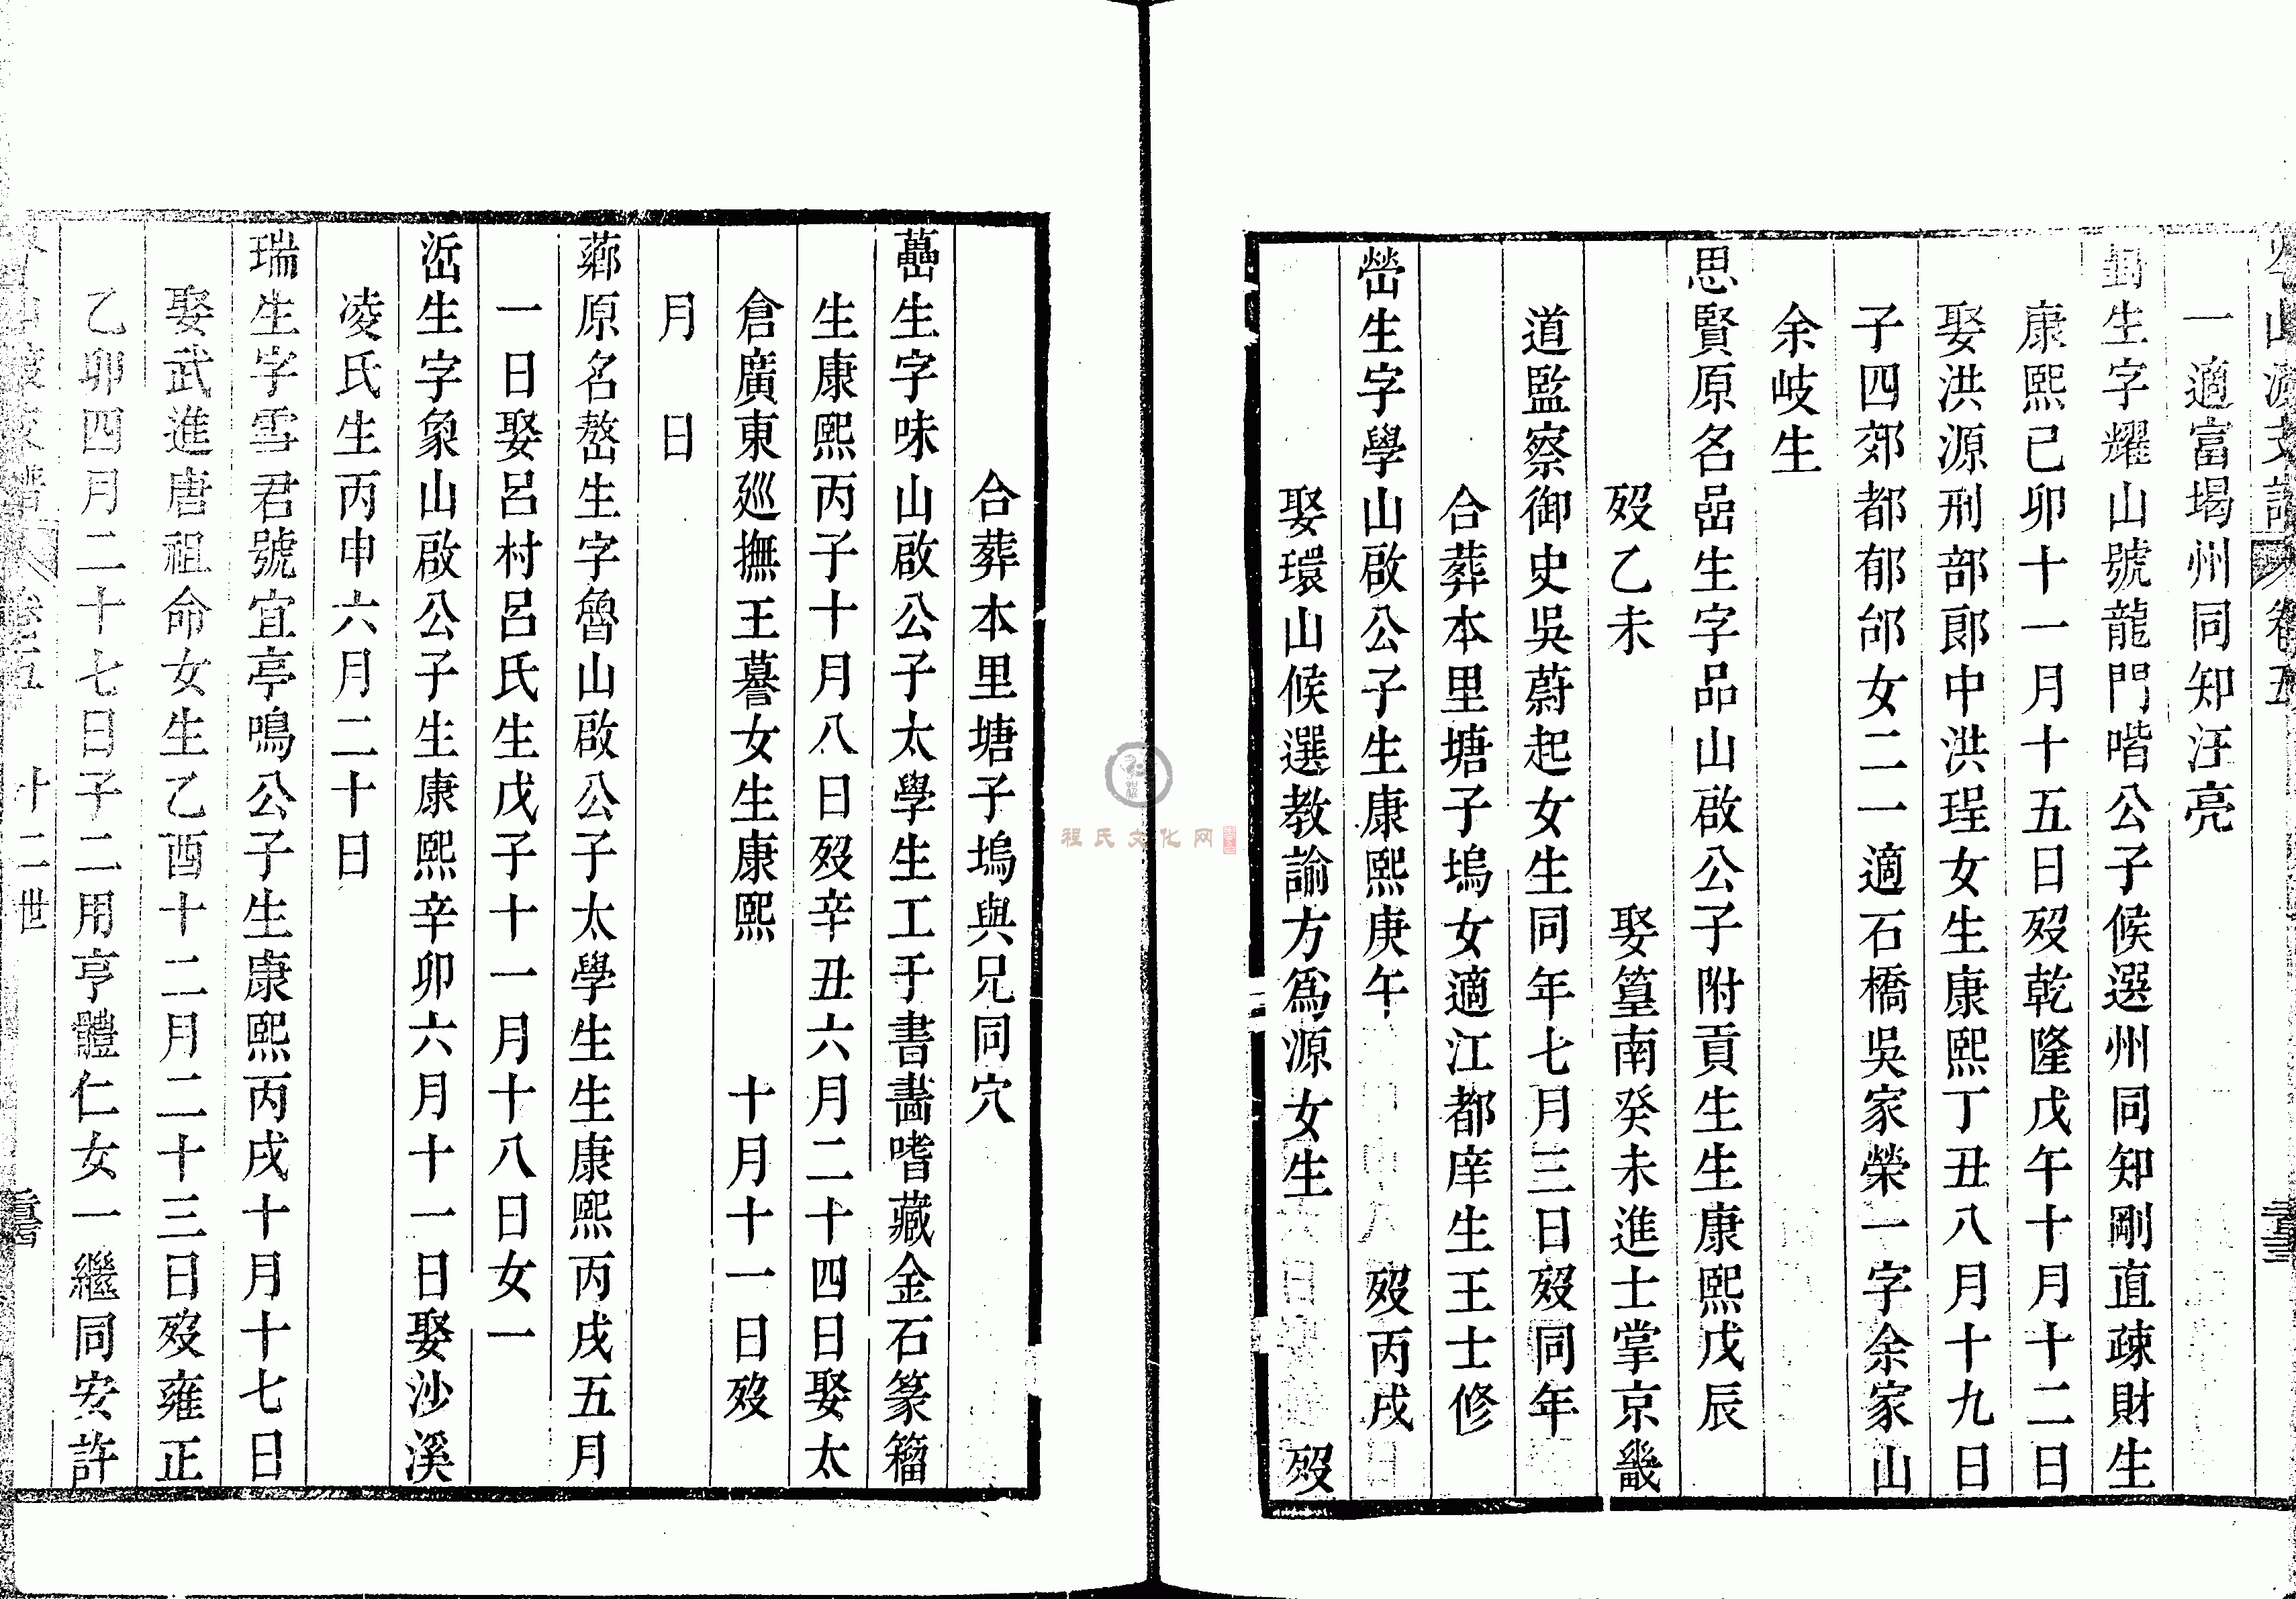 卷五
一適富堨州同知汪亮
生字耀山號龍門喈公子候選州同知剛直疎財生
康熙己卯十一月十五日歿乾隆戊午十月十二日
娶洪源刑部郎中洪珵女生康熙丁丑八月十九日
子四郊都郁邰女二一適石橋吳家榮一字余家山
余岐生
思賢原名嵒生字品山啟公子附貢生生康熙戊辰
歿乙未 娶篁南癸未進士掌京畿
道監察御史吳蔚起女生同年七月三日歿同年
合葬本里塘子塢女適江都庠生王士修
嶨生字學山啟公子生康熙庚午 歿丙戌
娶環山候選教諭方爲源女生 歿
合葬本里塘子塢與兄同穴
生字味山啟公子太學生工于書畫嗜藏金石篆籀
生康熙丙子十月八日歿辛丑六月二十四日娶太
倉廣東廵撫王謩女生康熙 十月十一日歿
月 日
原名嶅生字魯山啟公子太學生生康熙丙戌五月
一日娶呂村呂氏生戊子十一月十八日女一
生字象山啟公子生康熙辛卯六月十一日娶沙溪
凌氏生丙申六月二十日
瑞生字雪君號宜亭鳴公子生康熙丙戌十月十七日
娶武進唐祖命女生乙酉十二月二十三日歿雍正
乙卯四月二十七日子二用亨體仁女一繼同安許
卷五 十二世
程氏文化网